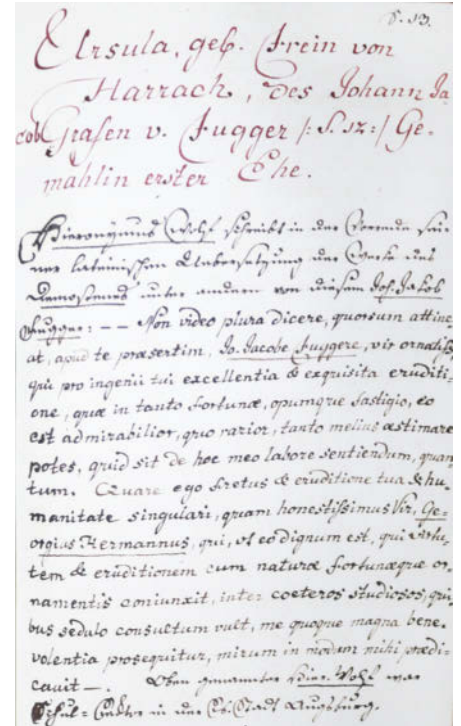 S. 13.
Ursula, geb. Frein von
Harrach, des Johann Ja
cob Grafen v. Fugger /: S. 12 :/ Ge-
mahlin erster Ehe.
Hieronymus Wolf schreibt in der Vorrede sei-
ner lateinischen Uebersetzung der Werke des
Demosthenes unter andern von diesem Joh. Jakob
Fugger: -- Non video plura dicere, quorsum attine-
at, apud te praesertim, Jo. Jacobe Fuggere, vir ornatiss,
qui pro ingenii tui excellentia & exquisita eruditi-
one, quae in tanto fortunae, opumque fastigio, eo
est admirabilior, quo rarior, tanto melius aestimare
potes, quid sit de hoc meo labore sentiendum, quan
tum. Quare ego fretus & eruditione tua & hu-
manitate singulari, quam honestissimus Vir, Ge-
orgius Hermannus, qui, ut eo dignum est, qui virtu-
tem & eruditionem cum naturae fortunaeque or-
namentis coniunxit, inter coeteros studiosos, qui-
bus sedulo consultum vult, me quoque magna bene-
volentia prosequitur, mirum in modum mihi praedi-
cauit —. Oben genannter Hier. Wolf war
Schul- in der Stadt Augsburg.